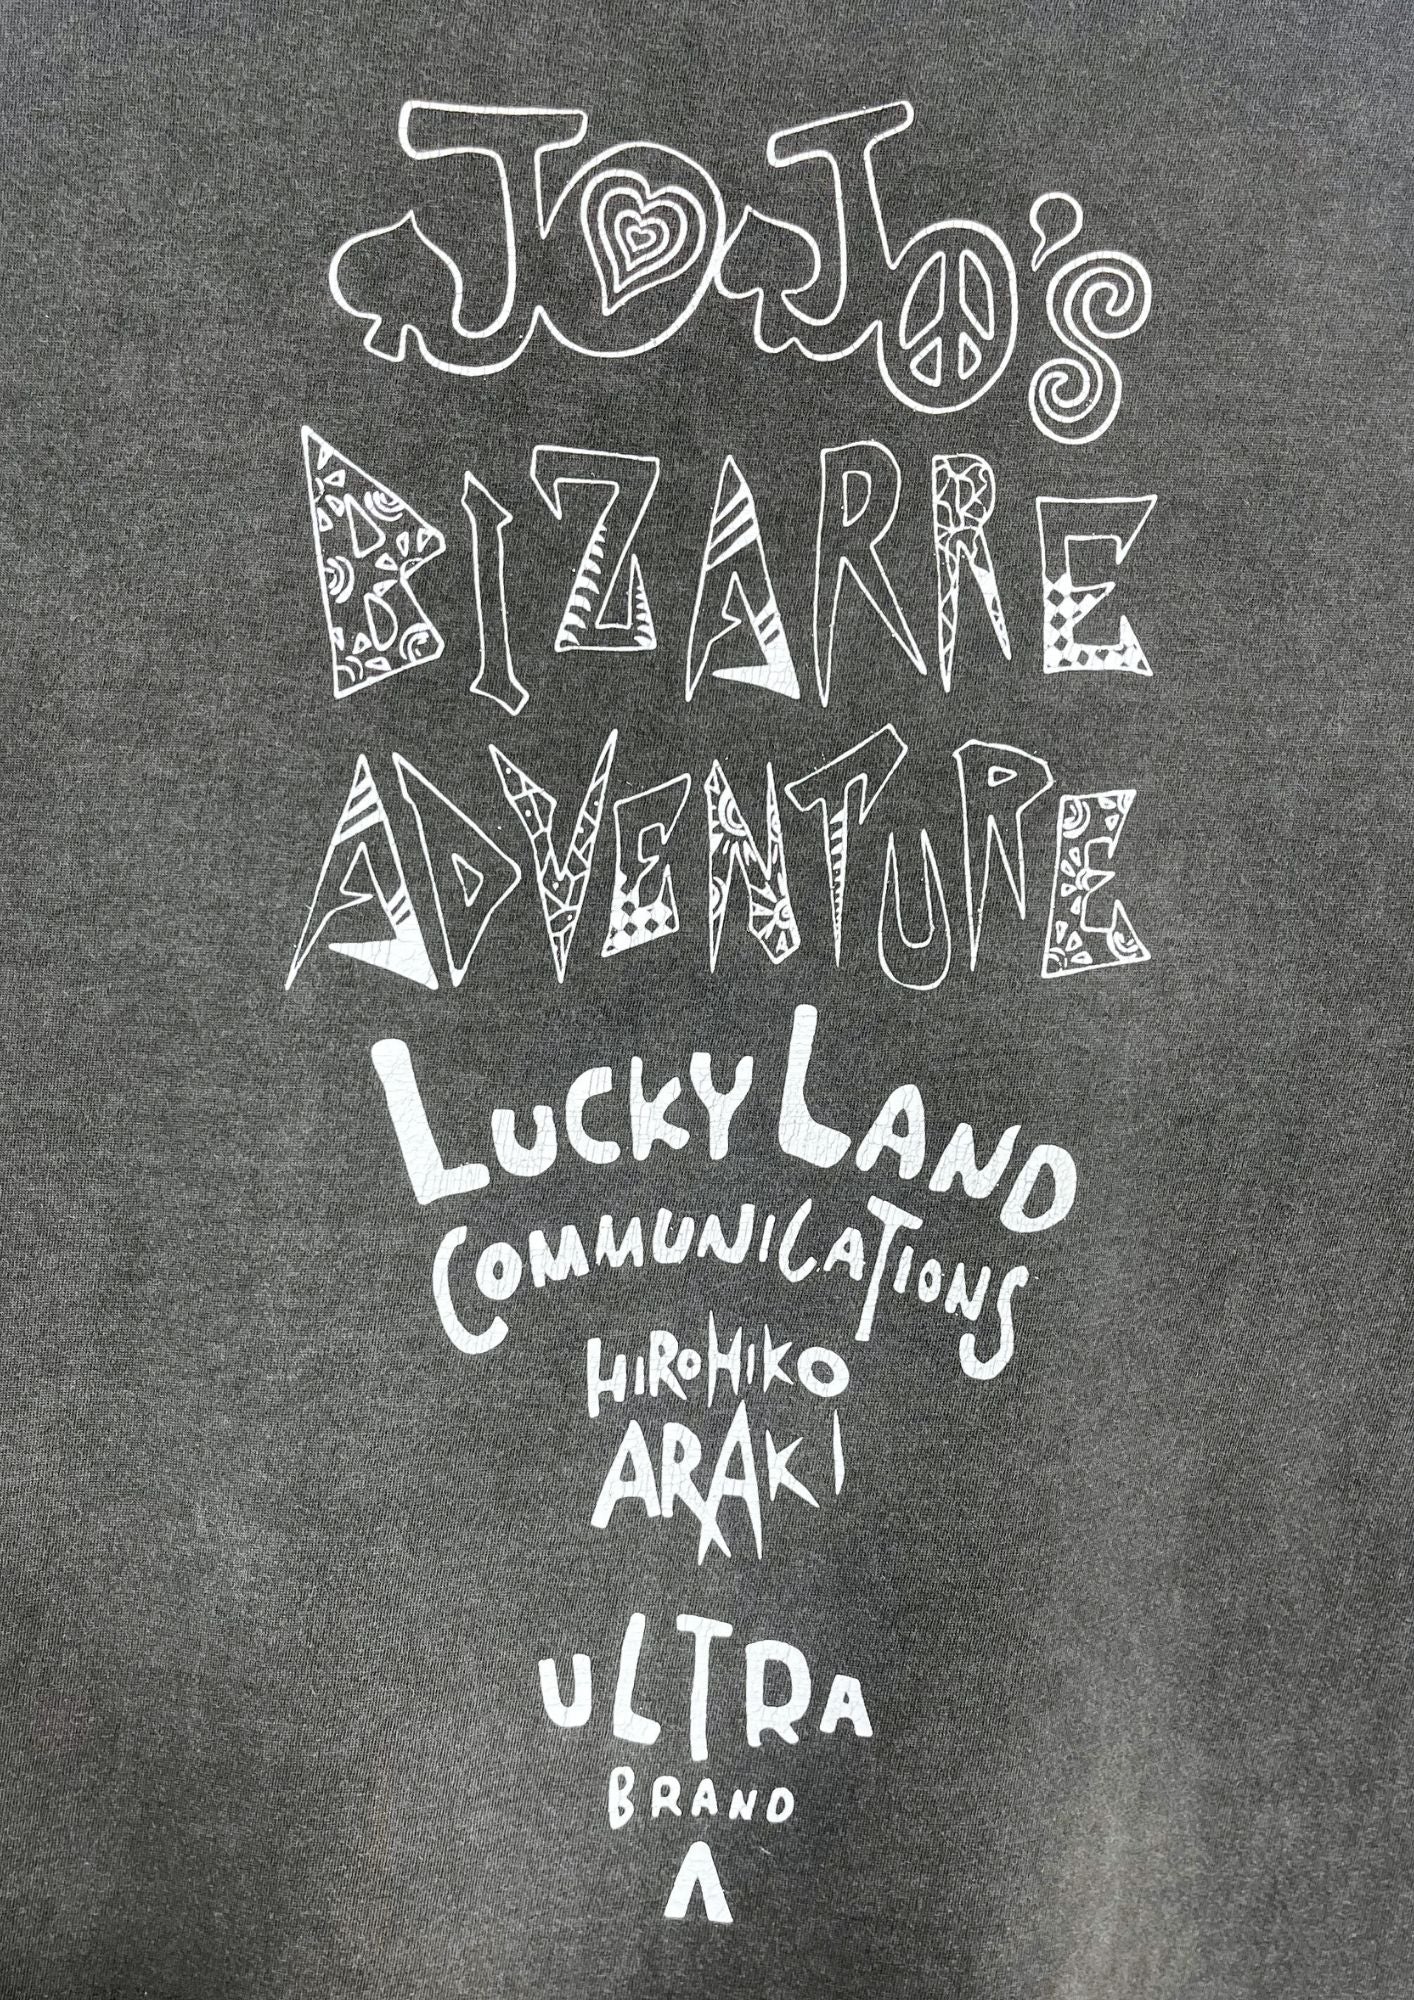 JOJO's
BIZARRE
ADVENTURE
LUCKY LAND
COMMUNICATIONS
HIROHIKO
ARAKI
ULTRA
BRAND
Λ